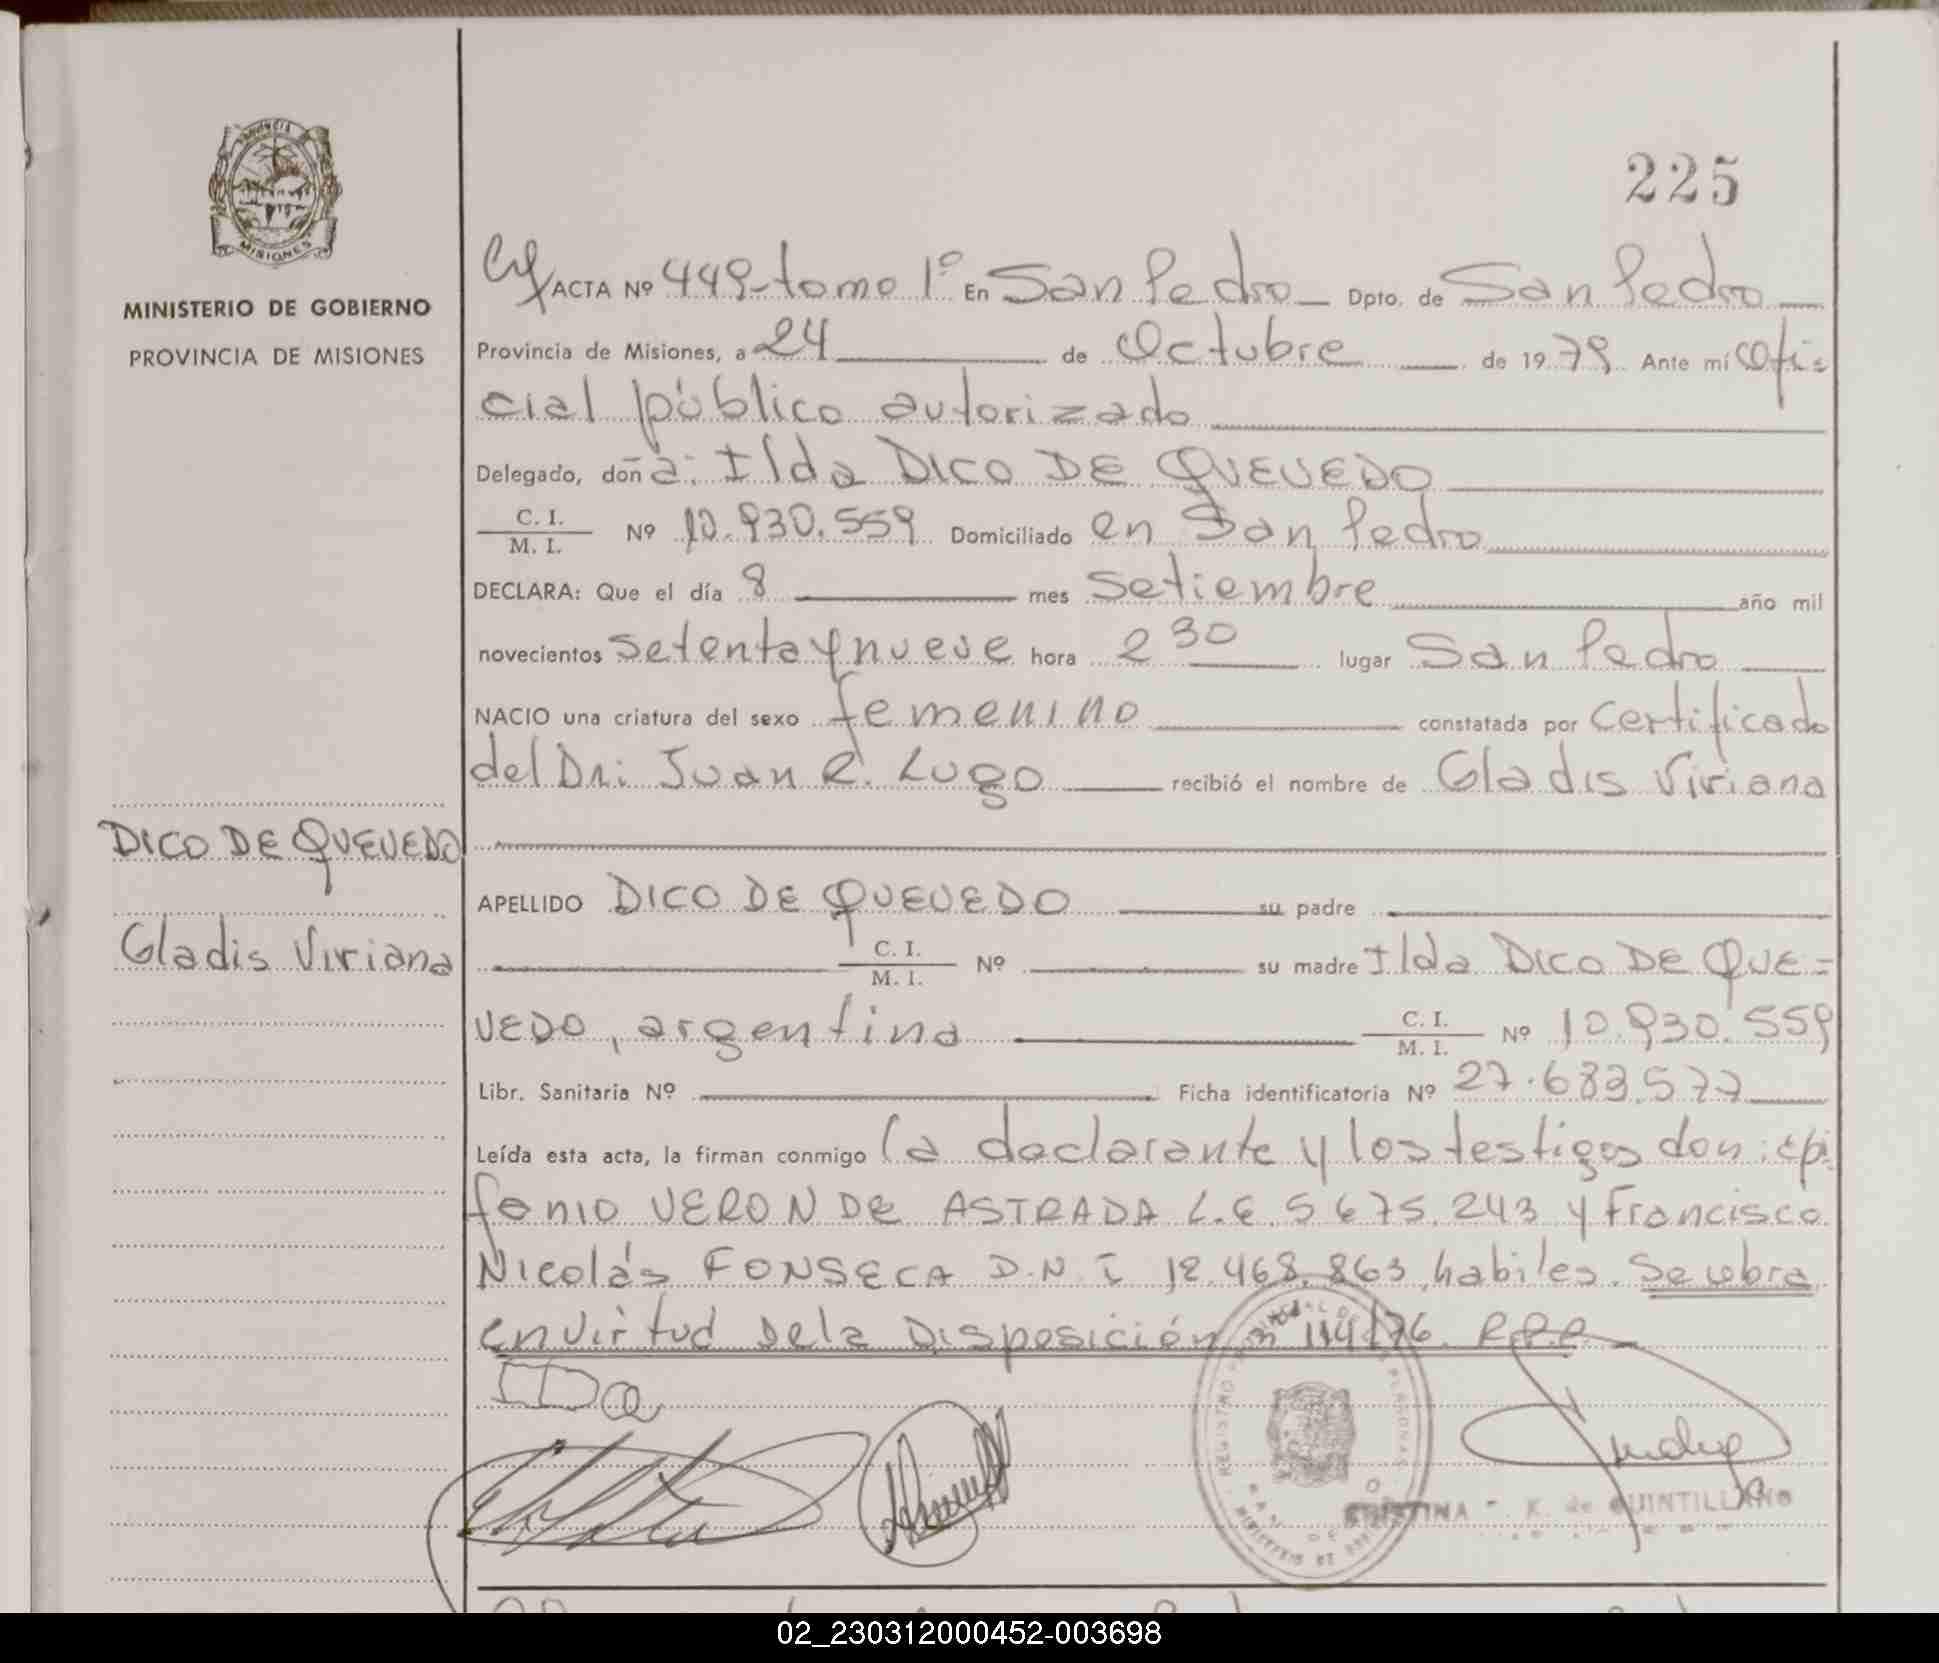 225
MINISTERIO DE GOBIERNO
PROVINCIA DE MISIONES
ACTA Nº 449-tomo 1º En San Pedro Dpto. de San Pedro
Provincia de Misiones, a 24 de Octubre de 1979 Ante mí Ofi=
cial público autorizado
Delegado, don a: Ilda DICO DE QUEVEDO
C. I. / M. I. Nº 10.930.559 Domiciliado en San Pedro
DECLARA: Que el día 8 mes setiembre año mil
novecientos setenta y nueve hora 2 30 lugar San Pedro
NACIO una criatura del sexo femenino constatada por certificado
del Dr: Juan R. Lugo recibió el nombre de Gladis Viviana
DICO DE QUEVEDO
Gladis Viviana
APELLIDO DICO DE QUEVEDO su padre
C. I. / M. I. Nº su madre Ilda DICO DE QUE=
VEDO, argentina C. I. / M. I. Nº 10.930.559
Libr. Sanitaria Nº Ficha identificatoria Nº 27.683.577
Leída esta acta, la firman conmigo la declarante y los testigos don: epi
fanio VERON DE ASTRADA L.E. 5 675.243 y Francisco
Nicolás FONSECA D.N.I 12.468.863, habiles. Se labra
en virtud de la Disposición nº 114/76. R.P.P.
IDa
CRISTINA K. de QUINTILLANO
02_230312000452-003698